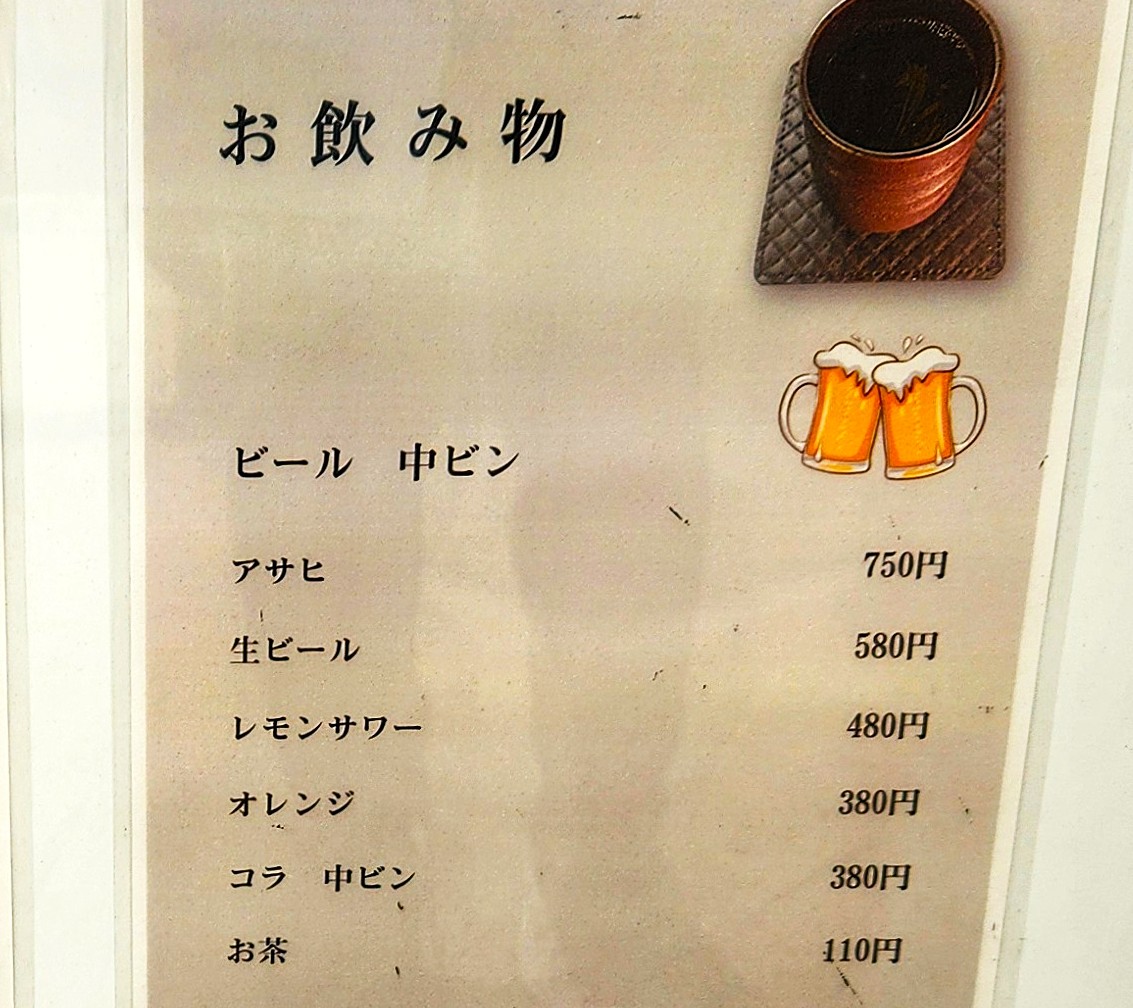 お飲み物
ビール　中ビン
アサヒ 750円
生ビール 580円
レモンサワー 480円
オレンジ 380円
コラ　中ビン 380円
お茶 110円